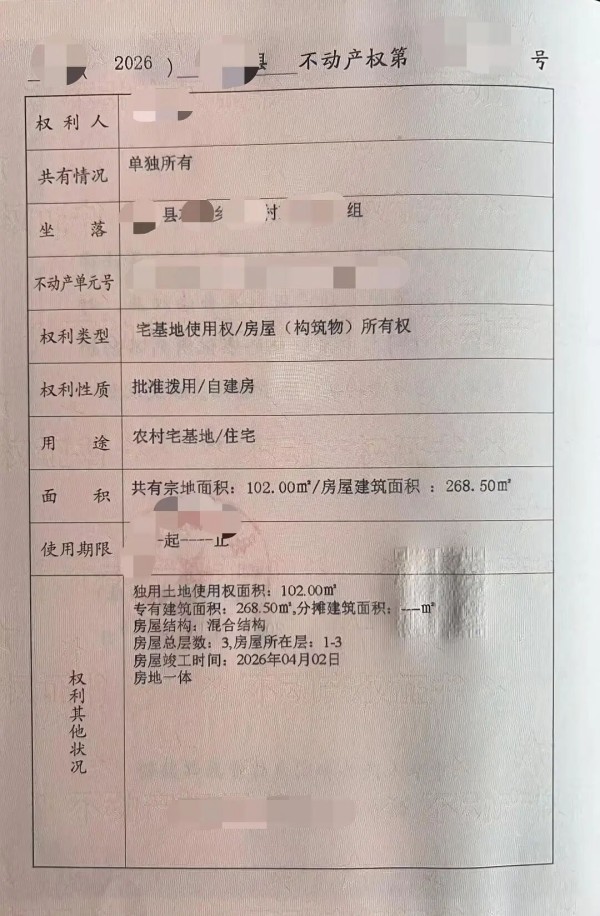 （ 2026 ） 县 不动产权第 号
权利人
共有情况 单独所有
坐落 县 乡 村 组
不动产单元号
权利类型 宅基地使用权/房屋（构筑物）所有权
权利性质 批准拨用/自建房
用途 农村宅基地/住宅
面积 共有宗地面积：102.00㎡/房屋建筑面积 ：268.50㎡
使用期限 -起----止
权利其他状况
独用土地使用权面积：102.00㎡
专有建筑面积：268.50㎡,分摊建筑面积：---㎡
房屋结构：混合结构
房屋总层数：3,房屋所在层：1-3
房屋竣工时间：2026年04月02日
房地一体